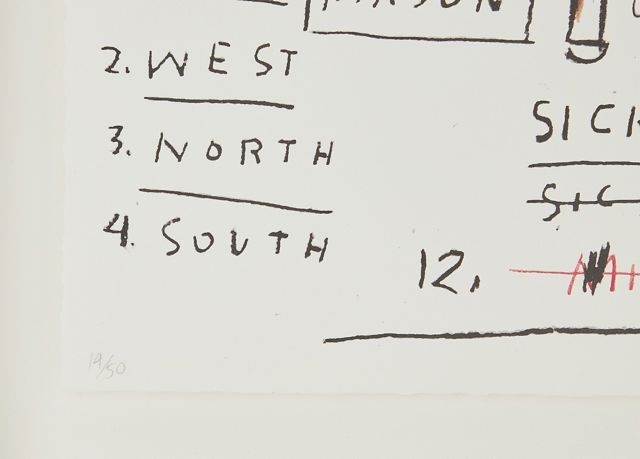 2. WEST
3. NORTH
4. SOUTH
SICK
SIC
12.
19/50